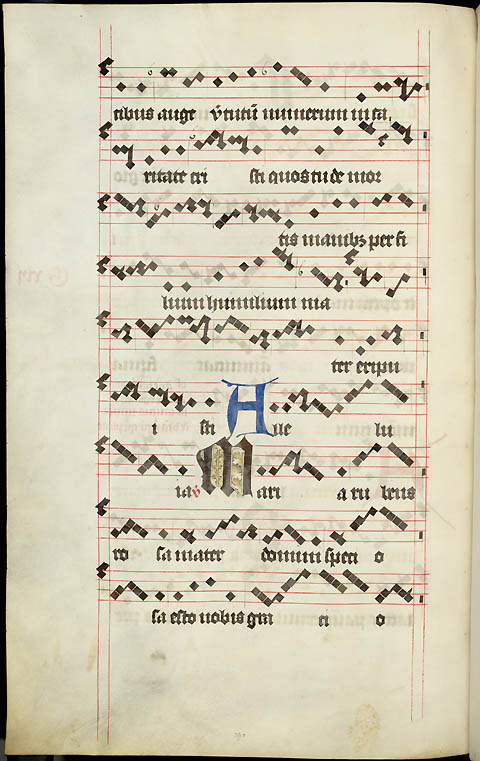 tibus auge v̄tutū numerum in ca,
ritate cri sti quos tu de mor
tis manibꝫ per fi
lium humilium ma
ter eripu
i sti Alle lu
ia v̄ Mari a ru bens
ro sa mater domini speci o
sa esto nobis gra ci o